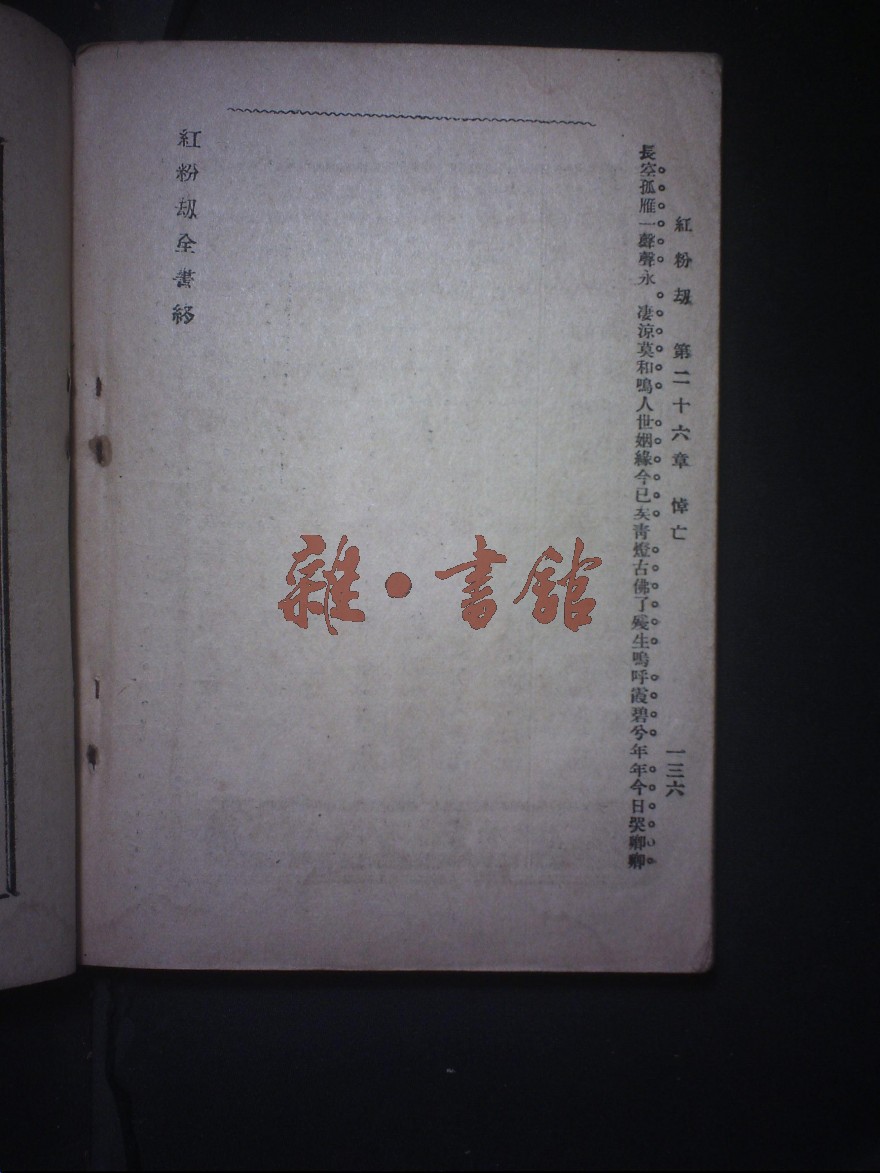 紅粉刼　第二十六章　悼亡　一三六
長空孤雁一聲聲永　淒涼莫和鳴人世姻緣今已矣靑燈古佛了殘生嗚呼霞碧兮年年今日哭卿卿
紅粉刼全書終
雜·書館